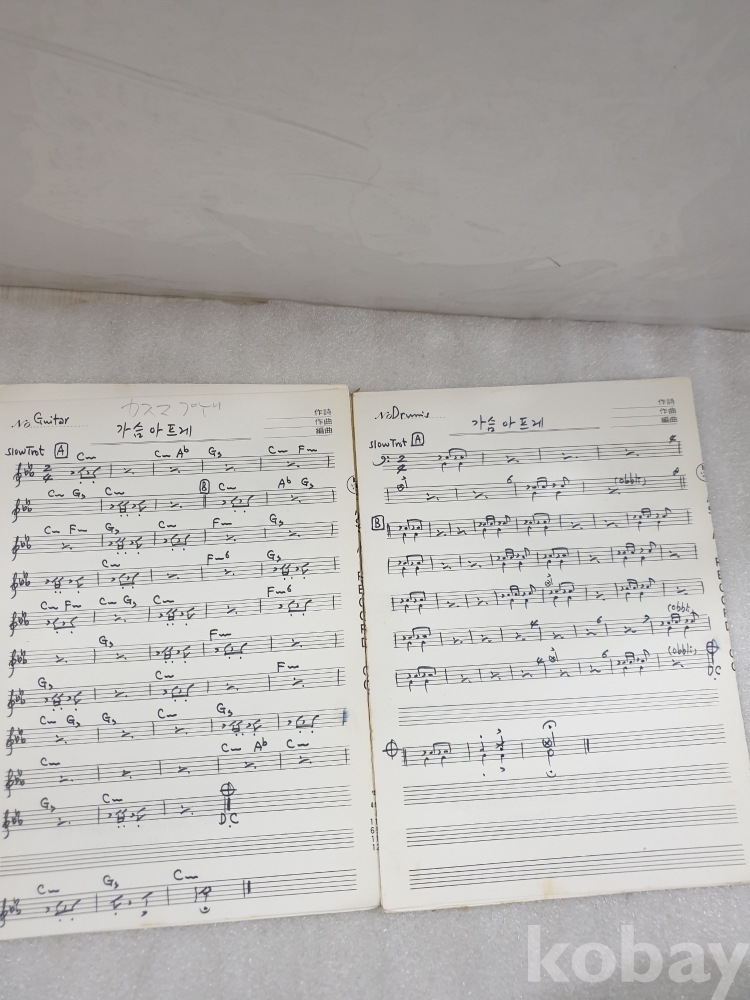 Guitar
가슴아프게
作詩
作曲
編曲
slowTrot A
Cm Cm Ab G7 Cm Fm
Cm G7 Cm B Cm Ab G7
Cm Fm G7 Cm Fm G7
Cm Fm6 G7
Cm Fm Cm G7 Cm Fm6
G7 Fm
G7 Cm Fm
Cm G7 G7 Cm G7
Cm Cm Ab Cm
G7 Cm
D.C
Cm G7 Cm
Drums
가슴아프게
作詩
作曲
編曲
slowTrot A
2
4
4
6
B
4 6
4 6
D.C
kobay